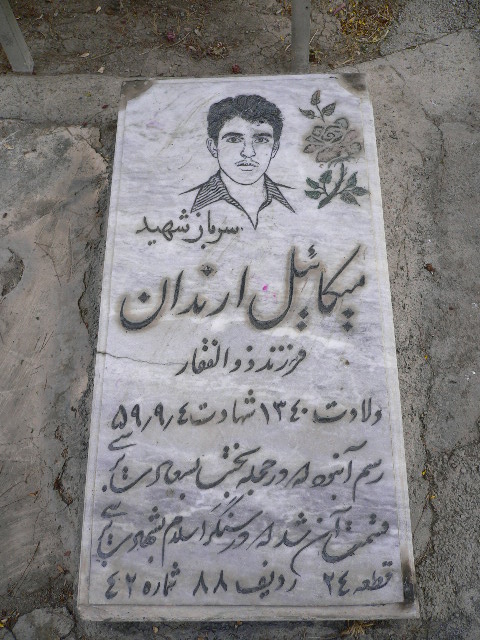 سرباز شهید
میکائیل ارندان
فرزند ذوالفقار
ولادت ۱۳۴۰ شهادت ۵۹٫۹٫۴
رسم آن بُد که در حجله بخت بسعادت برسی
قسمت آن شد که در سنگر اسلام بشهادت برسی
قطعه ۲۴ ردیف ۸۸ شماره ۴۲